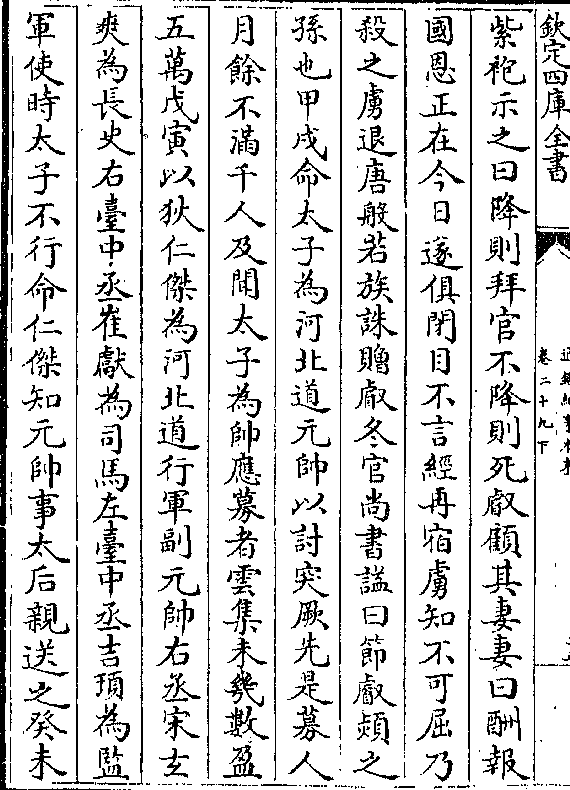 欽定四庫全書
卷二十九下
紫袍示之曰降則拜官不降則死叡顧其妻妻曰酬報
國恩正在今日遂俱閉目不言經再宿虜知不可屈乃
殺之虜退唐般若族誅贈叡冬官尚書諡曰節叡熲之
孫也甲戌命太子為河北道元帥以討突厥先是募人
月餘不滿千人及聞太子為帥應募者雲集未幾數盈
五萬戊寅以狄仁傑為河北道行軍副元帥右丞宋玄
爽為長史右臺中丞崔獻為司馬左臺中丞吉頊為監
軍使時太子不行命仁傑知元帥事太后親送之癸未